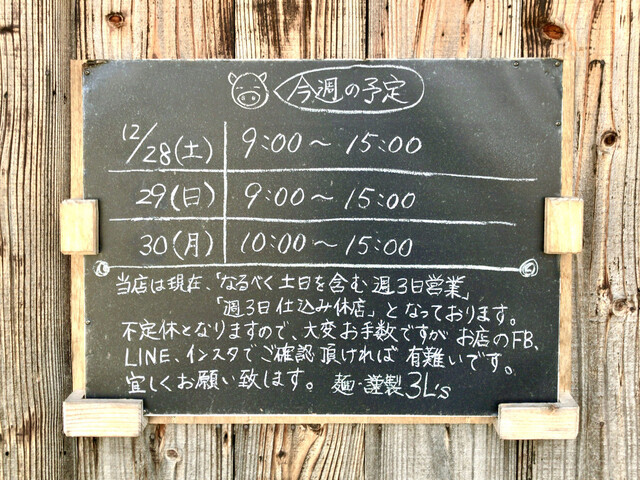 今週の予定
12/28(土) 9:00〜15:00
29(日) 9:00〜15:00
30(月) 10:00〜15:00
当店は現在、「なるべく土日を含む週3日営業」
「週3日仕込み休店」となっております。
不定休となりますので、大変お手数ですがお店のFB、
LINE、インスタでご確認頂ければ有難いです。
宜しくお願い致します。 麺・謹製 3L's